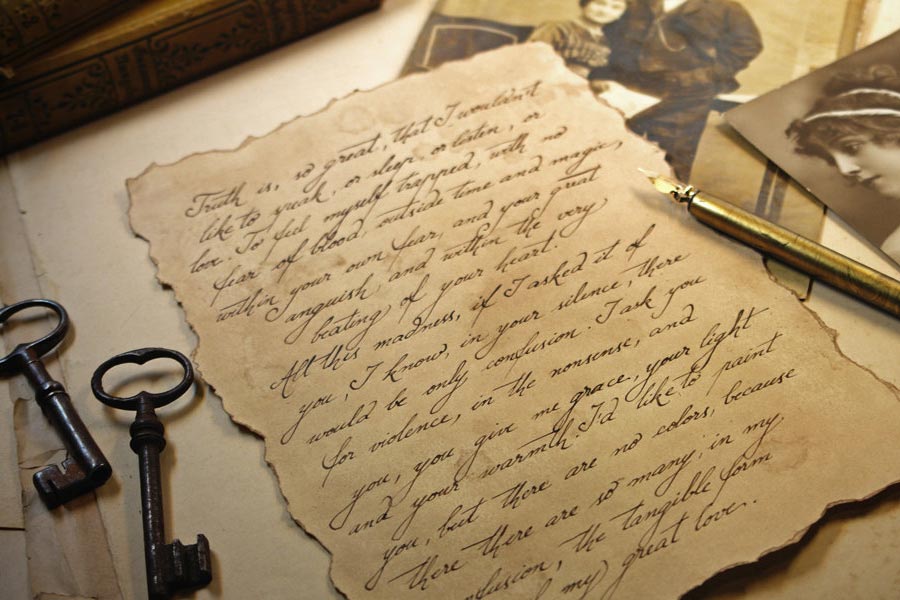 Truth is, so great, that I wouldn't
like to speak, or sleep, or listen, or
love. To feel myself trapped, with no
fear of blood, outside time and magic,
within your own fear, and your great
anguish, and within the very
beating of your heart.
All this madness, if I asked it of
you, I know, in your silence, there
would be only confusion. I ask you
for violence, in the nonsense, and
you, you give me grace, your light
and your warmth. I'd like to paint
you, but there are no colors, because
there there are so many, in my
the tangible form
my great love.